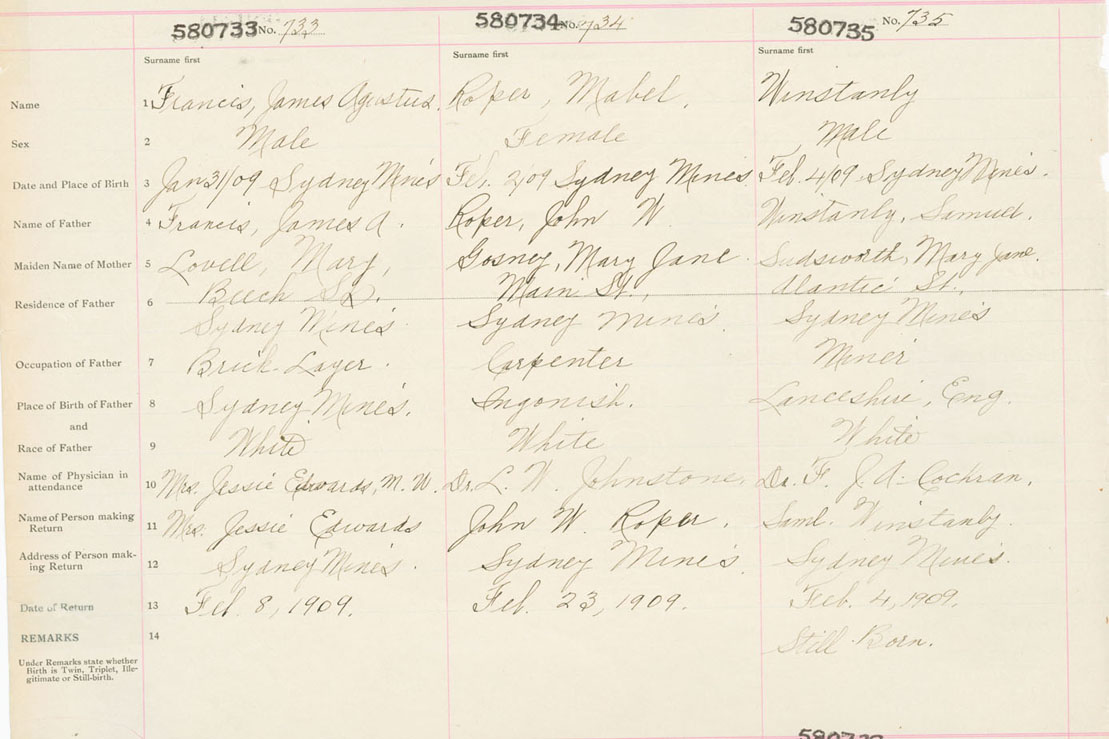 580733 No. 733 580734 No. 734 580735 No. 735
Surname first Surname first Surname first
Name 1 Francis, James Agustus. Roper, Mabel. Winstanly
Sex 2 Male Female Male
Date and Place of Birth 3 Jan 31/09 Sydney Mines Feb. 2/09 Sydney Mines Feb. 4/09 Sydney Mines.
Name of Father 4 Francis, James A. Roper, John W. Winstanly, Samuel.
Maiden Name of Mother 5 Lovell, Mary, Gosney, Mary Jane. Sudsworth, Mary Jane.
Residence of Father 6 Beech Main St., Alantic St.,
Sydney Mines. Sydney Mines. Sydney Mines
Occupation of Father 7 Brick-Layer. Carpenter Miner
Place of Birth of Father 8 Sydney Mines. Ingonish. Lanceshire, Eng.
and
Race of Father 9 White White White
Name of Physician in
attendance 10 Mrs. Jessie Edwards, M. W. Dr. L. W. Johnstone. Dr. F. J. A. Cochran.
Name of Person making
Return 11 Mrs. Jessie Edwards John W. Roper. Saml. Winstanly.
Address of Person mak-
ing Return 12 Sydney Mines. Sydney Mines. Sydney Mines.
Date of Return 13 Feb. 8, 1909. Feb. 23, 1909. Feb. 4, 1909.
REMARKS 14 Still Born.
Under Remarks state whether
Birth is Twin, Triplet, Ille-
gitimate or Still-birth.